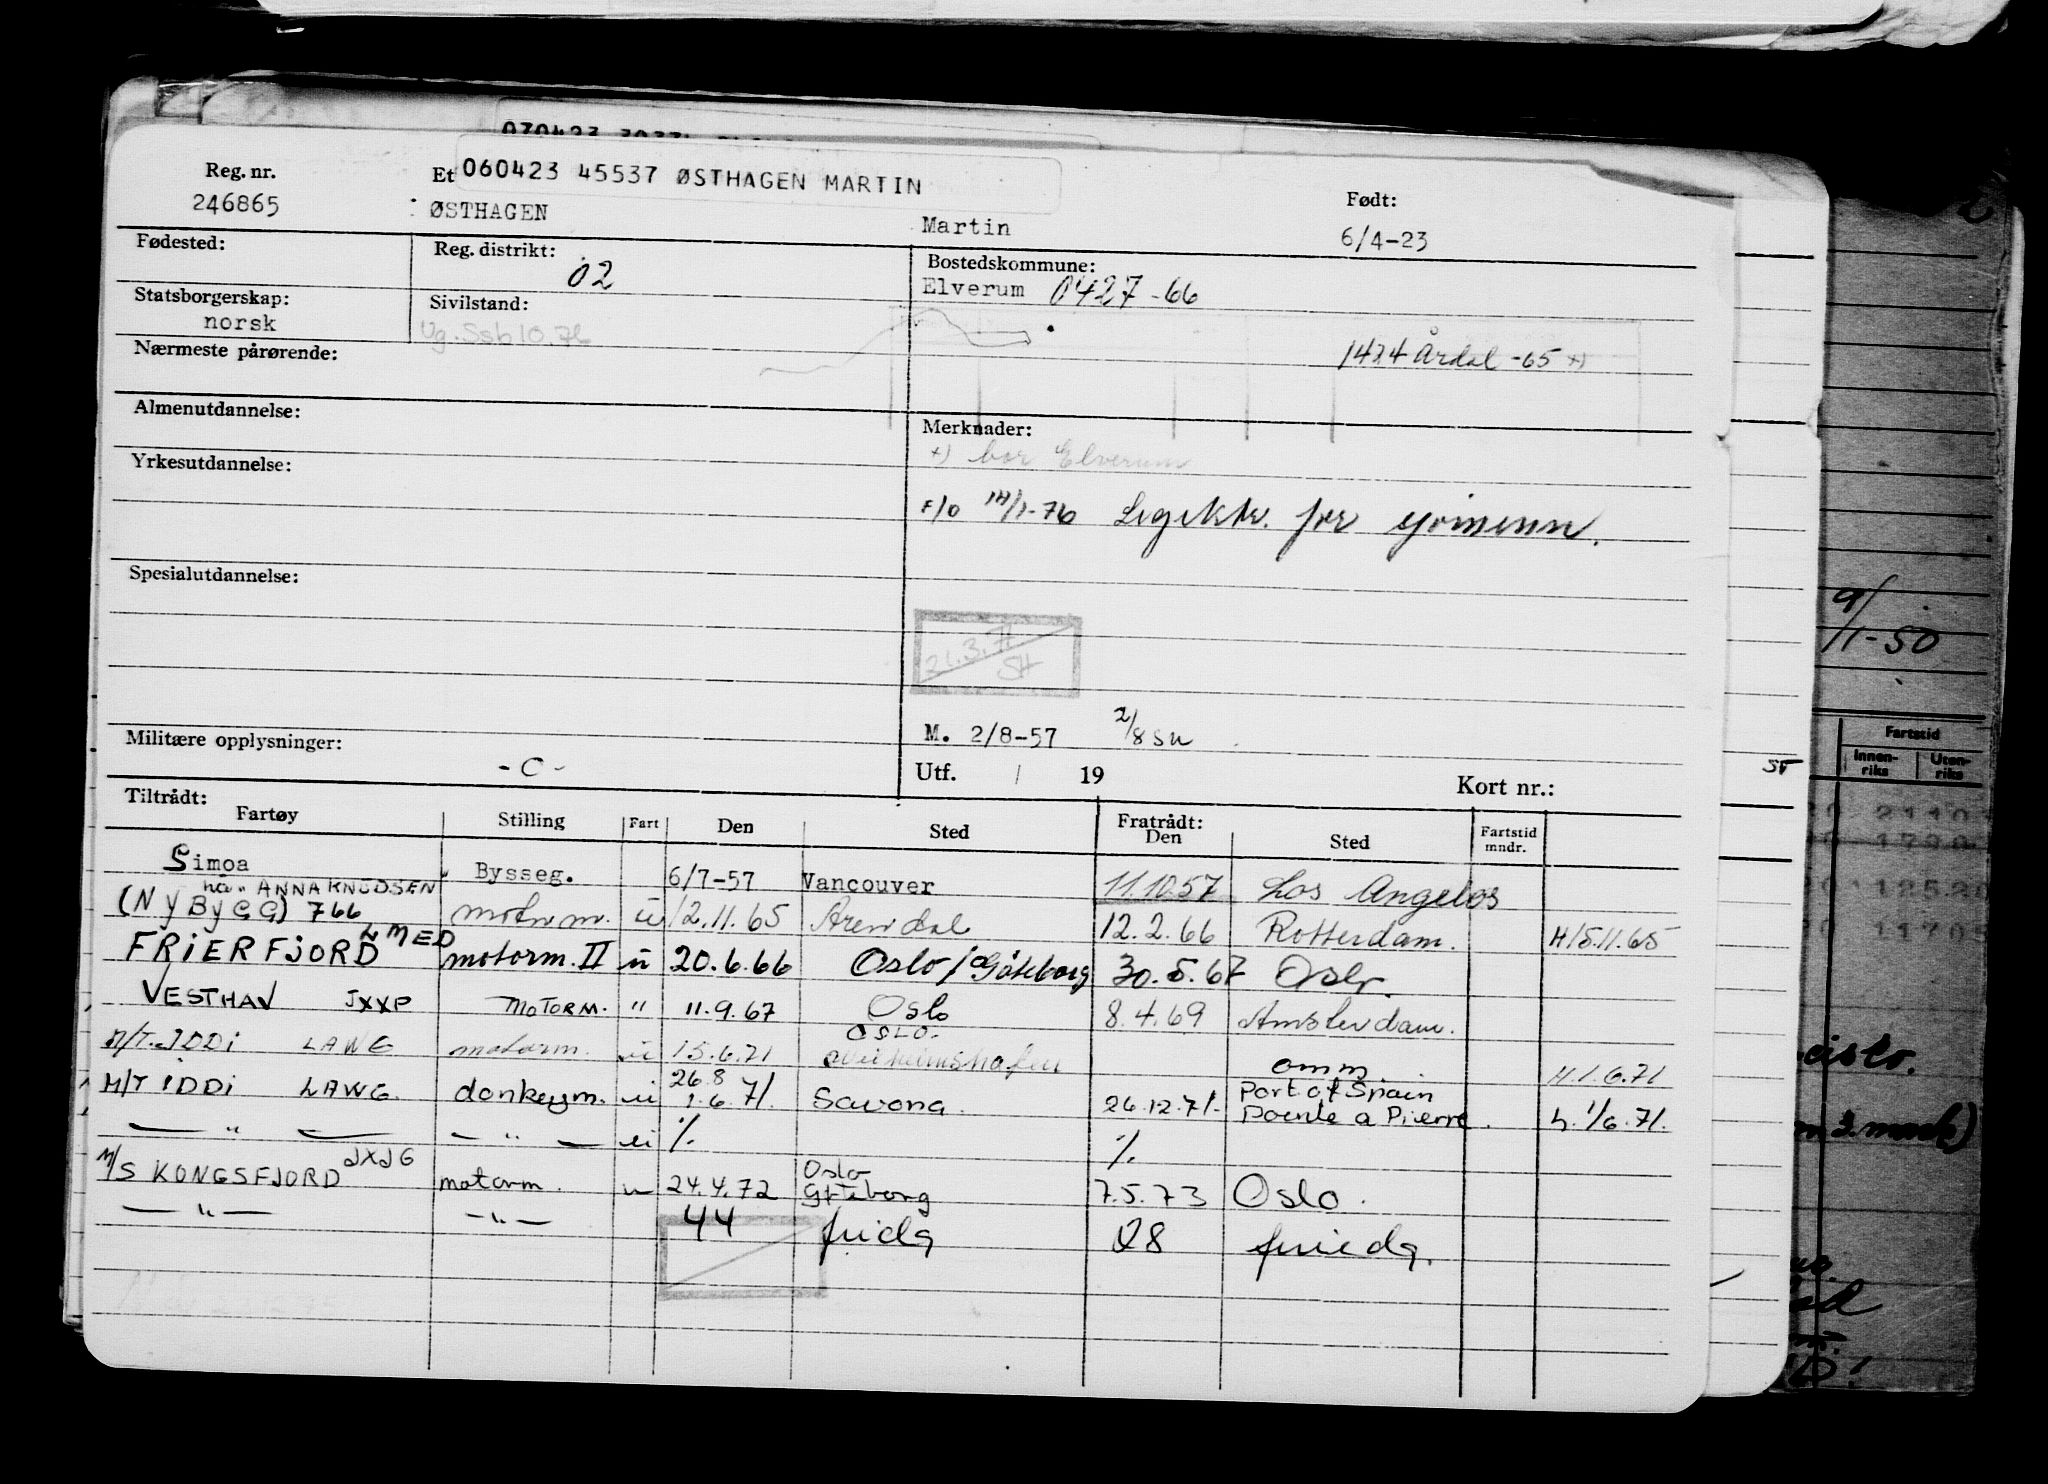 070423
060423 45537 ØSTHAGEN MARTIN
Reg. nr. Et Født:
246865 ØSTHAGEN Martin 6/4-23
Fødested: Reg. distrikt: 02 Bostedskommune:
Elverum 0427-66
Statsborgerskap: Sivilstand:
norsk Ug. Ssb 10.76
Nærmeste pårørende: 1424 Årdal -65 +)
Almenutdannelse: Merknader:
+) bor Elverum
Yrkesutdannelse:
F/O 14/1-76 for sjømenn.
Spesialutdannelse:
21.3.71
SH
M. 2/8-57 2/8 SH
Militære opplysninger: -C-
Utf. / 19 Kort nr.:
Tiltrådt: Fratrådt:
Fartøy Stilling Fart Den Sted Den Sted Fartstid mndr.
Simoa Bysseg. 6/7-57 Vancouver 11.10.57 Los Angelos
nå "ANNA KNUDSEN"
(NYBYGG) 766 motorm. u 12.11.65 Arendal 12.2.66 Rotterdam. H 15.11.65
FRIERFJORD LMED motorm. II u 20.6.66 Oslo/Göteborg 30.5.67 Oslo.
VESTHAV JXXP MOTORM. " 11.9.67 Oslo 8.4.69 Amsterdam.
M/T. IDDI LAWG motorm. u 15.6.71 OSLO. Wilhelmshafen omm H. 1.6.71
M/T IDDI LAWG. donkeym. u 26.8 1.6.71. Savona. 26.12.71. Port of Spain Pointe a Pierre. h. 1/6.71.
— " — — " — u % %
M/S KONGSFJORD JXJG motorm. u 24.4.72 Oslo Gøteborg 7.5.73 Oslo.
— " — — " — 44 frida 28 frieda.
9/11-50
Fartstid
Innenriks Utenriks